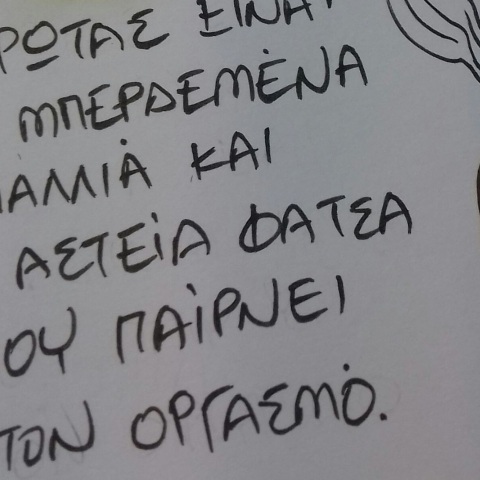 ΡΩΤΑΣ ΕΙΝΑΙ
ΜΠΕΡΔΕΜΕΝΑ
ΜΑΛΛΙΑ ΚΑΙ
ΑΣΤΕΙΑ ΦΑΤΣΑ
ΟΥ ΠΑΙΡΝΕΙ
ΤΟΝ ΟΡΓΑΣΜΟ.